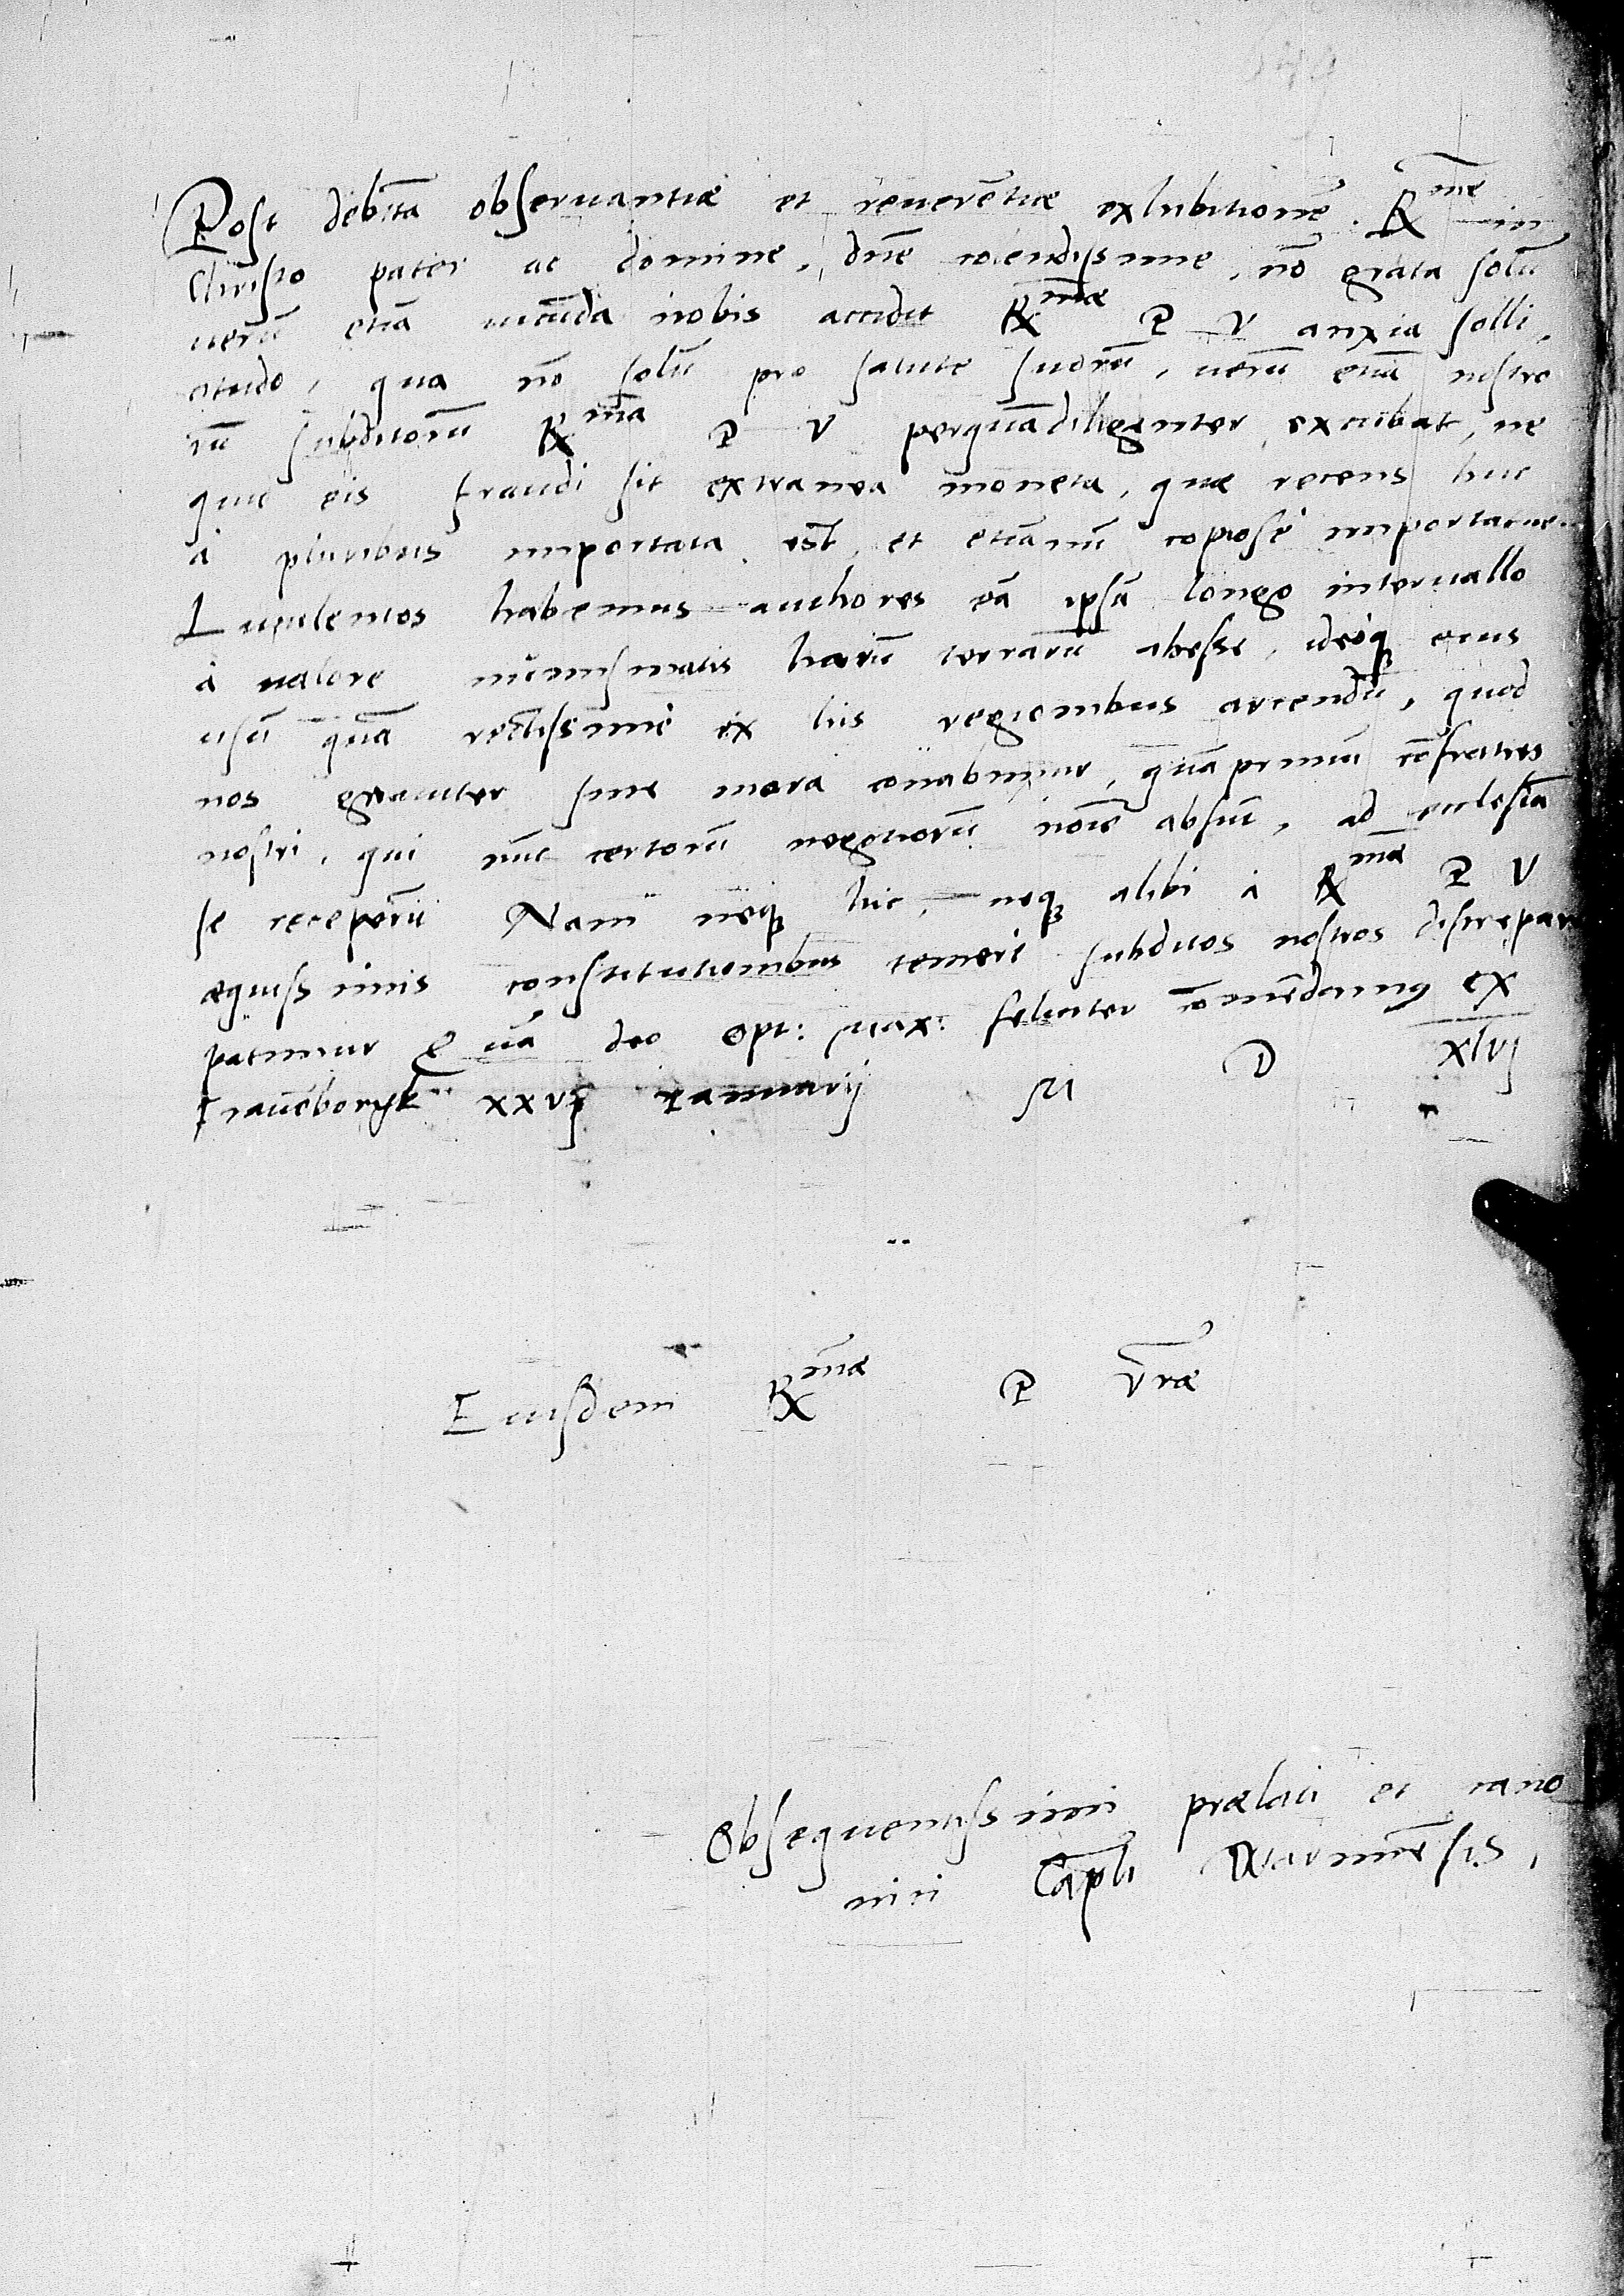 Post debitā obseruantiæ et reuerētiæ exhibitionē. Rx̄me in
Christo pater ac domine, dn̄e colendissime, nō grata solū
uerū etiā iucūda nobis accidit Rx̄mæ P V anxia solli,
citudo, qua nō solū pro salute suorū, uerū etiā nostro
rū subditorū Rx̄ma P V perquā diligenter excubat, ne
quie eis fraudi sit extranea moneta, quæ recens huc
à pluribus importata est, et etiānū copiosè importatur.
Luculentos habemus authores eā ipsā longo interuallo
à ualore numismatis harū terrarū abesse, ideoq; eius
usū quā rectissimè ex his regionibus arcendū, quod
nos grauiter sine mora conabimur, quā primū cōfratres
nostri, qui nūc certorū negotiorū noīe absūt, ad ecclesiā
se receperīt Nam neq; hic, neq; alibi à Rx̄mæ P V
æquissimis constitutionibus temerè subditos nostros discrepare
patimur quā deo Opt: Max: feliciter cōmēdamus ex
Frauēborgk xxvij Ianuarij M D xlvj
Eiusdem Rx̄mæ P V̄ræ
Obsequentissimi prælati et cano
nici Capl̄i Warmiēsis,